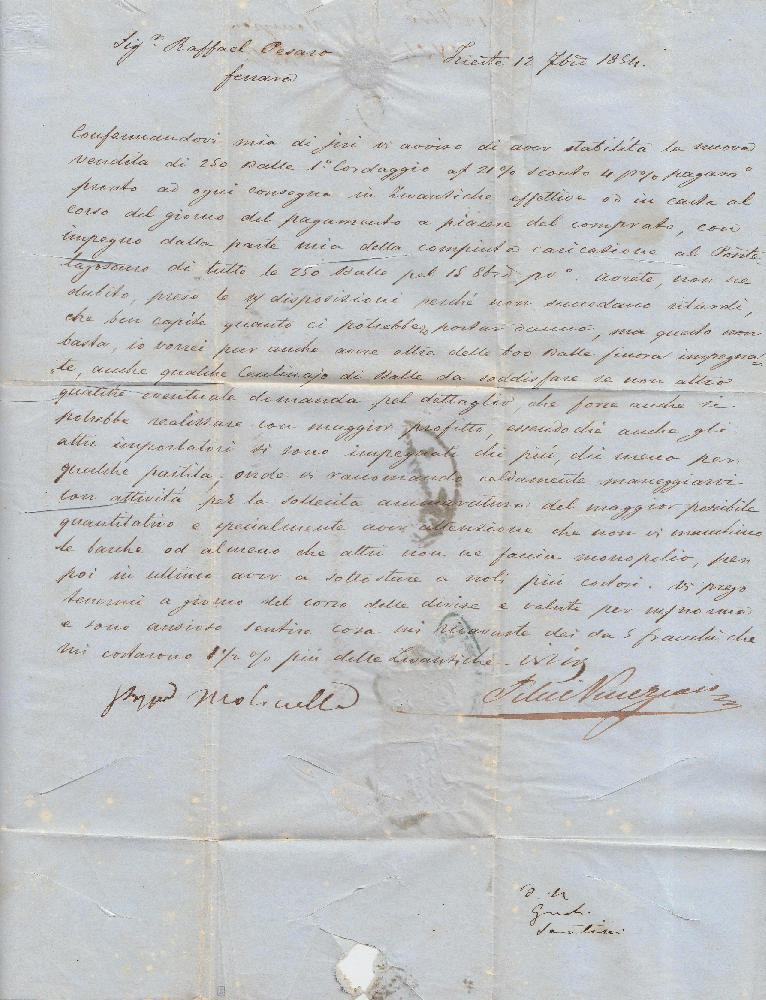 Sig.r Raffael Pesaro Trieste 12 7bre 1854.
Ferrara
Confermandovi mia di jeri vi avviso di aver stabilità la nuova
vendita di 250 Balle 1a Cordaggio a f 21 % sconto 4 p% pagamo
pronto ad ogni consegna in Zwantiche effettive od in carta al
corso del giorno del pagamento a piacere del comprato, con
impegno dalla parte mia della compiuta caricazione al Ponte
lagoscuro di tutte le 250 Balle pel 15 8bre po. avrete, non ne
dubito, prese le disposizioni perché non succedano ritardi,
che ben capite quanto ci potrebbe portar danno, ma questo non
basta, io vorrei pur anche avere oltre delle 600 Balle finora impegna=
te, anche qualche Centinajo di Balle da soddisfare se non altro
qualche eventuale domanda pel dettaglio che forse anche si
potrebbe realizzare con maggior profitto, essendoché anche gli
altri importatori si sono impegnati chi più, chi meno per
qualche partita. onde vi raccomando caldamente maneggiarvi
con attività per la sollecita del maggior possibile
quantitativo e specialmente aver attenzione che non vi manchino
le barche od almeno che altri non ne faccia monopolio, per
poi in ultimo aver a sottostare a noli più costosi. Vi prego
tenermi a giorno del corso delle divise e valute per norma
e sono ansioso sentire cosa mi ricavaste dei da 5 franchi che
mi costarono 1½ % più delle Zwantiche.
Felice Veneziani